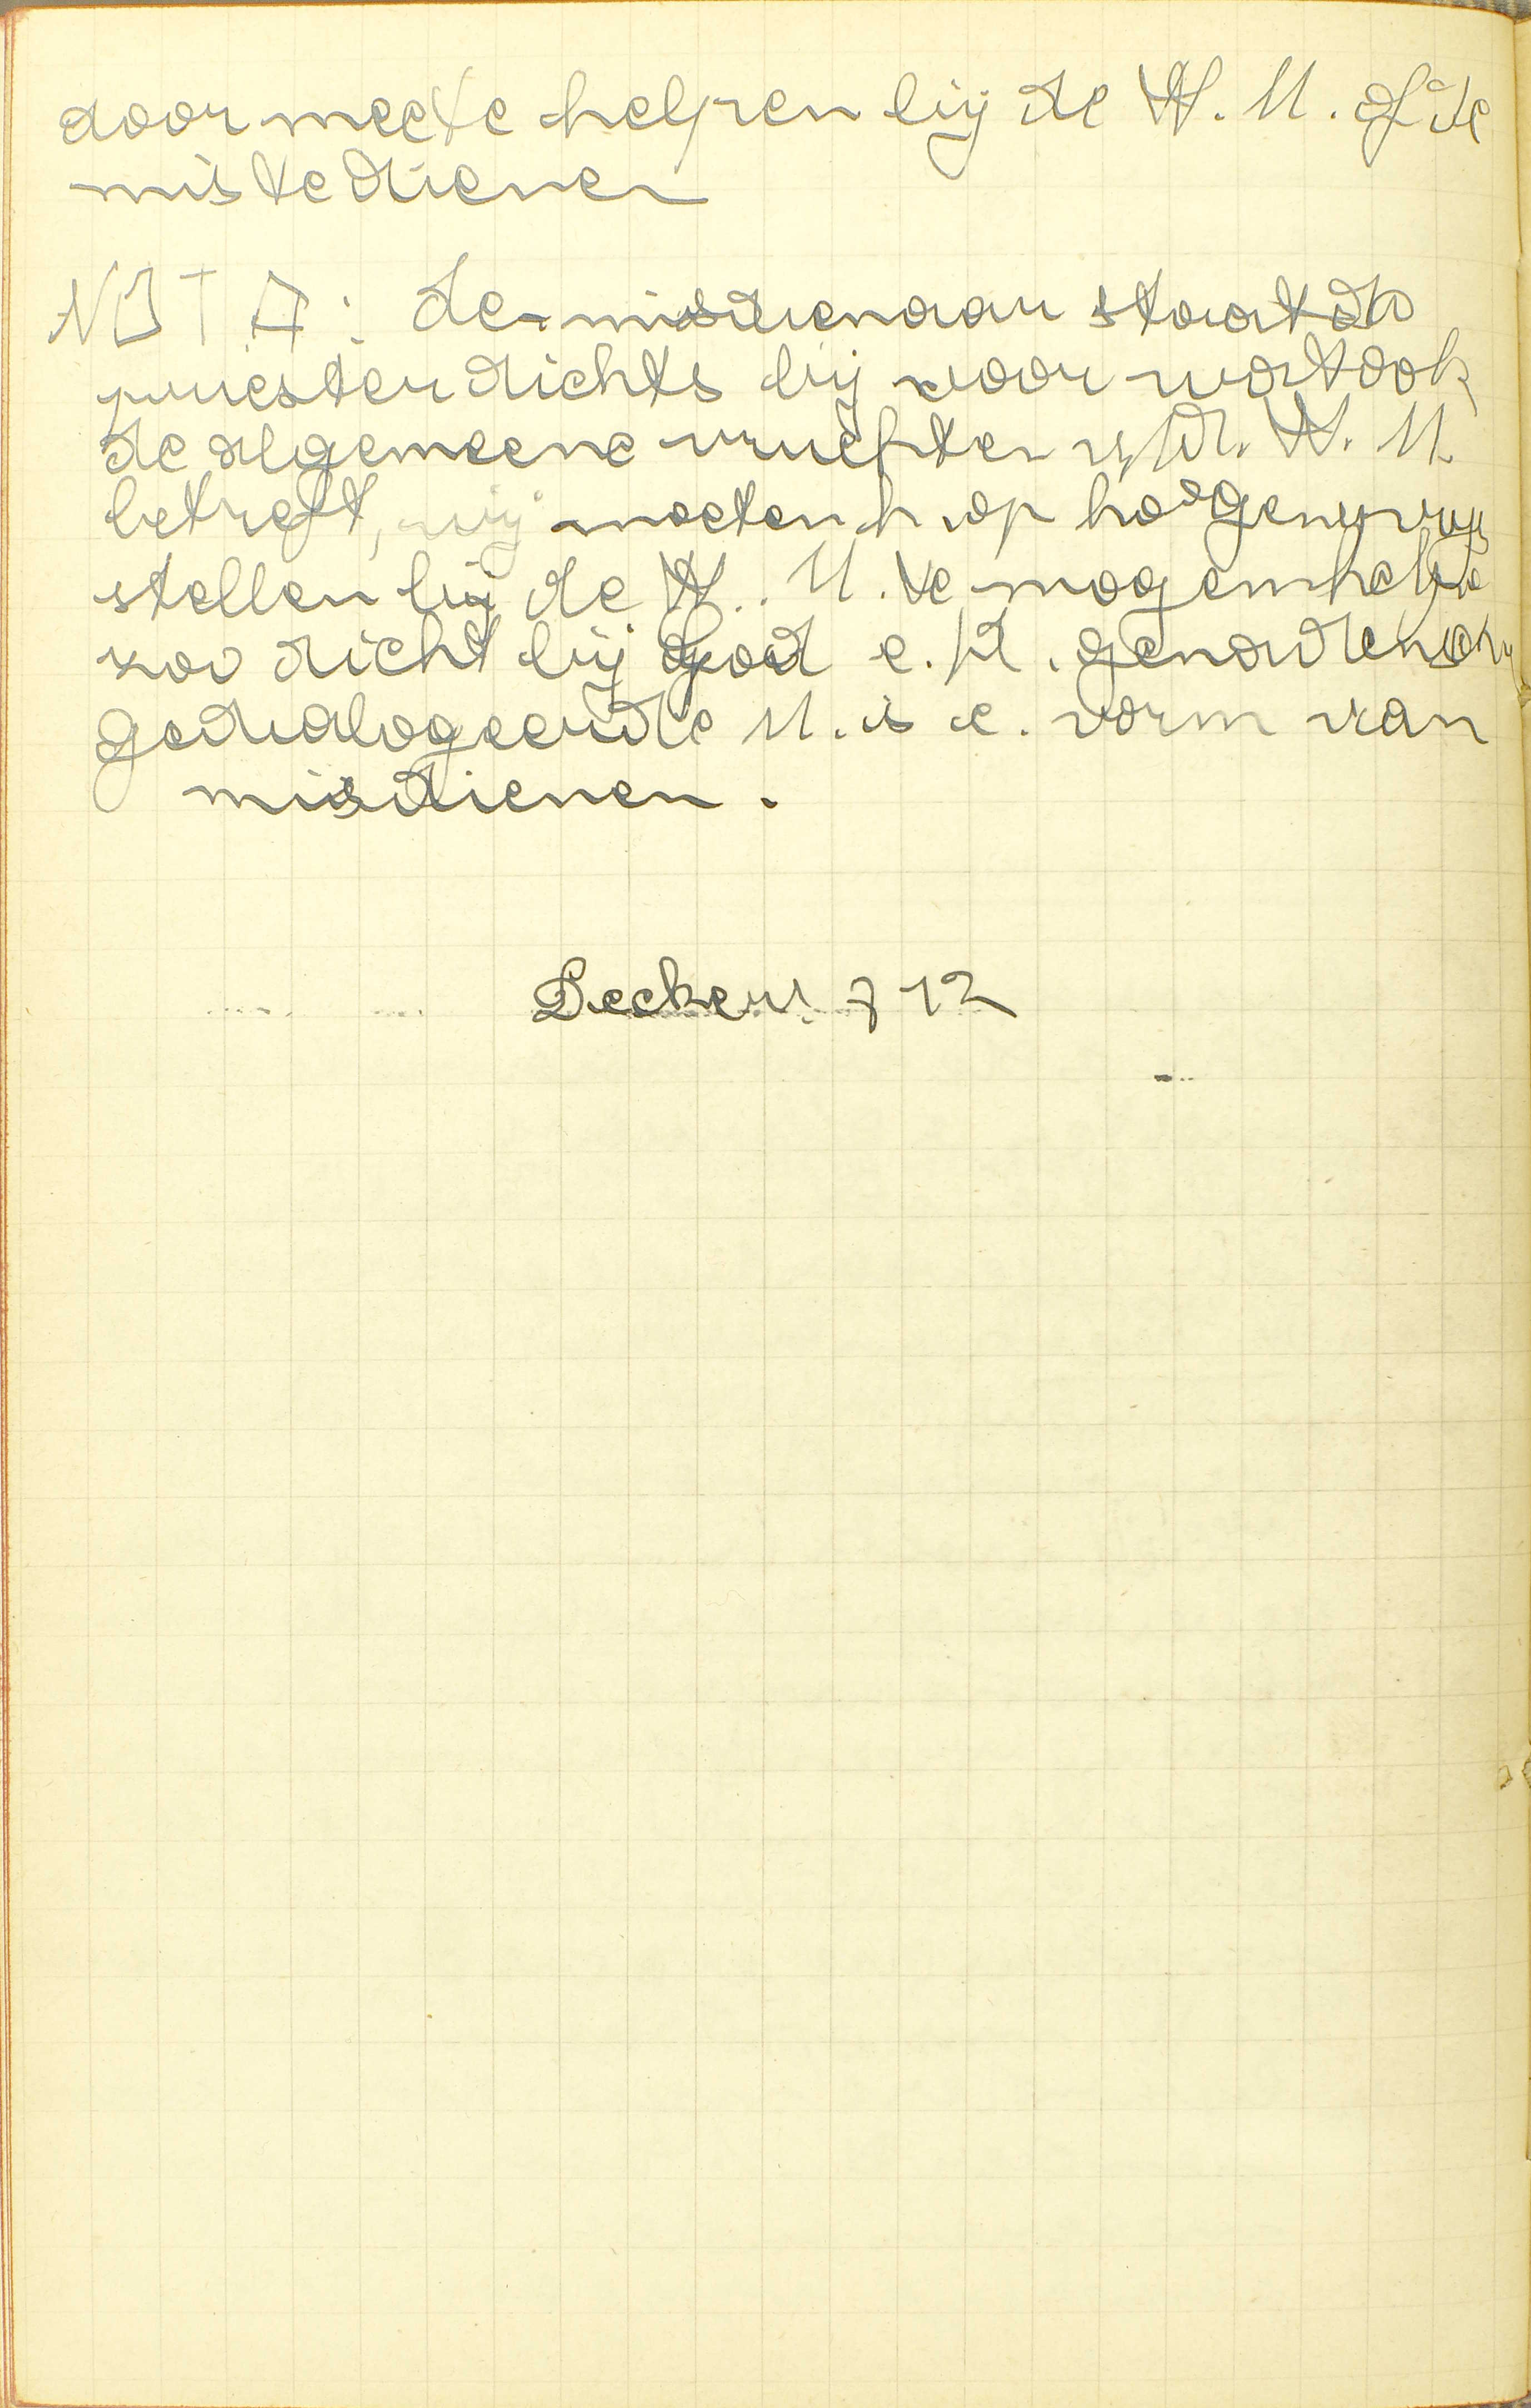 door mee te helpen bij de H. M. of de
mis te dienen
NOTA: de misdienaar staat de
priester dichts bij voor wat ook
de algemeene vruchten v/d. H. M.
betreft, wij moeten h. op hoogen prijs
stellen bij de H. M. te mogen helpen
zoo dicht bij God e./d. genaden
gedialogeerde M. is e. vorm van
misdienen.
Deckers 712